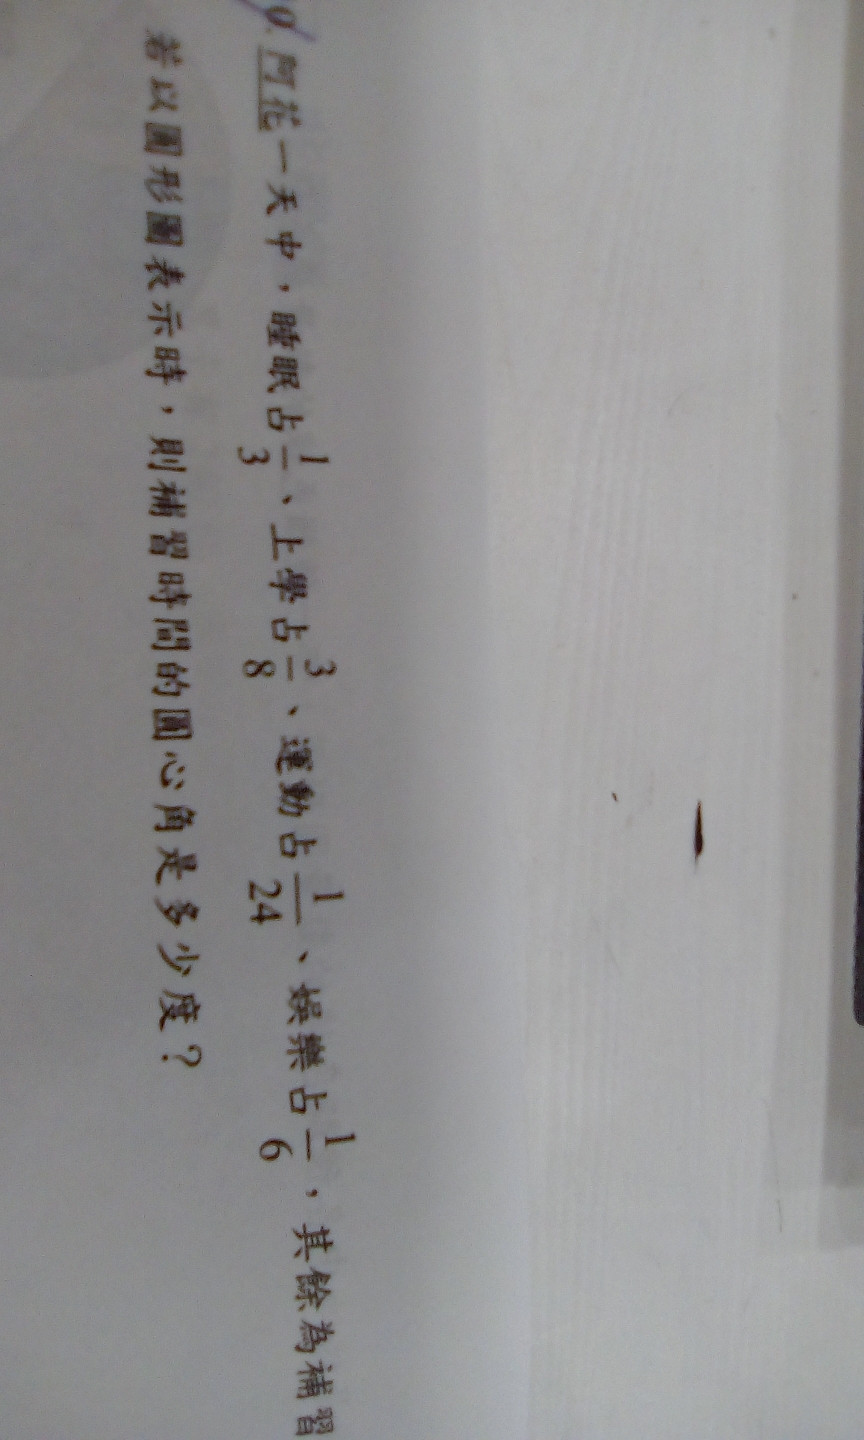 0. 阿花一天中，睡眠占1/3、上學占3/8、運動占1/24、娛樂占1/6，其餘為補習
若以圓形圖表示時，則補習時間的圓心角是多少度？